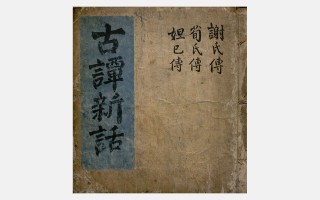 古譚新話
謝氏傳
荀氏傳
妲己傳